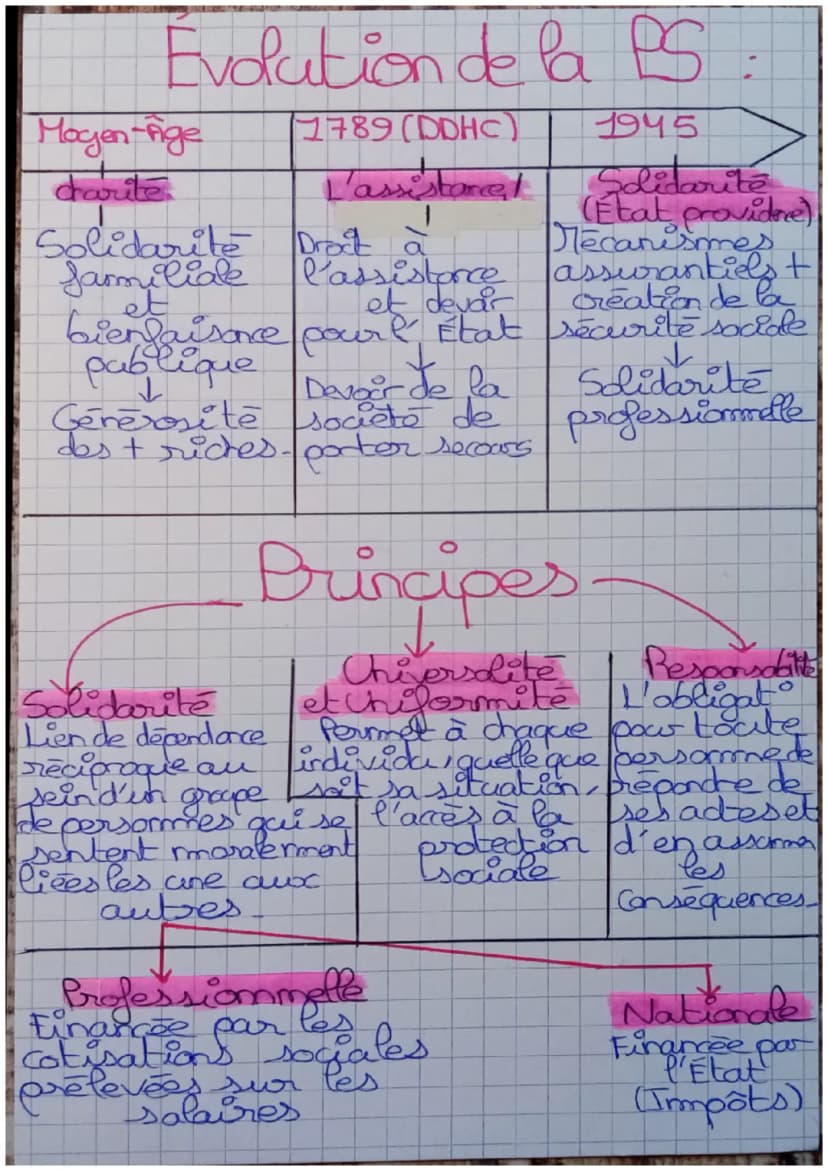 Évolution de la PS :
Moyen-Âge
charité
Solidarité
familiale
et
bienfaisance
publique
↓
Générosité
des + riches.
1789 (DDHC)
L'assistance
Droit à
l'assistance
et devoir
pour l'État
↓
Devoir de la
société de
porter secours
1945
Solidarité
(État providence)
Mécanismes
assurantiels +
création de la
sécurité sociale
↓
Solidarité
professionnelle
Principes
Solidarité
Lien de dépendance
réciproque au
sein d'un groupe
de personnes qui se
sentent moralement
liées les une aux
autres.
Universalité
et Uniformité
Permet à chaque
individu, quelle que
soit sa situation,
l'accès à la
protection
sociale
Responsabilité
L'obligat°
pour toute
personne de
répondre de
ses actes et
d'en assumer
les
conséquences.
Professionnelle
Financée par les
cotisations sociales
prélevées sur les
salaires
Nationale
Financée par
l'État
(Impôts)